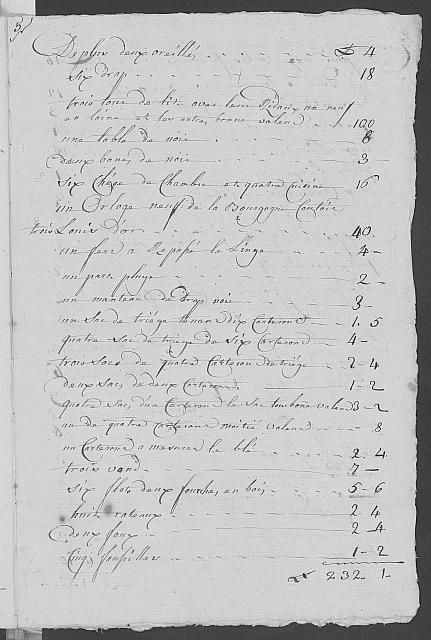 De plus deux oreillé . . . ₶ 4
Six drap . . . . . . . 18
trois tour de lits avec leur Ridaux un neuf
en laine et les autres bonne valeur . . 100
une table de noie . . . . . 8
deux bancs de noie . . . . . 3
Six Chèse de Chambre et quatre Cuisine 16
un Orloge neuf de la Bourgogne Coutoit
trois Louis d'or . . . . . 40
un fere a Repasé le Linge . . 4
un para pluye . . . . 2
un manteau de Drap noie . . . 3
un Sac de triége tenan dix Carteron 1 . 5
quatre Sac de triége de Six Carteron 4
trois Sacs de quatre Carteron de triége 2 - 4
deux Sac, de deux Carteron 1 - 2
quatre Sac, d'un Carteron le Sac tous bone valeur 3 - 2
un de quatre Carteron moitié valeur - 8
un Carteron a mesurer le blé . . . 2 . 4
trois vand . . . . 7
Six flots deux fourches en bois . . 5 - 6
huit rateaux . . . . . 2 4
deux faux . . . . . 2 - 4
Cinq fausilles . . . . 1 - 2
232 - 1